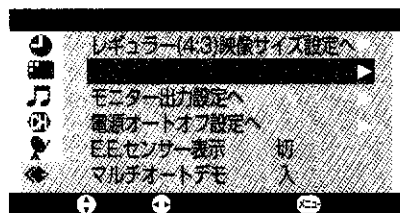 レギュラー(4:3)映像サイズ設定へ
モニター出力設定へ
電源オートオフ設定へ
E.E.センサー表示 切
マルチオートデモ 入
メニュー